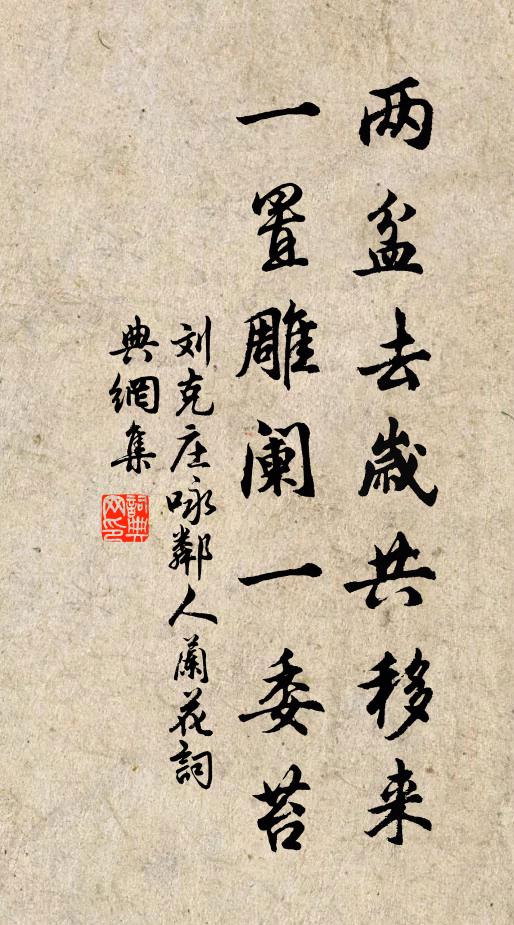 两盆去岁共移来
一置雕阑一委苔
刘克庄咏鄰人蘭花詞
典網集
詞典网印